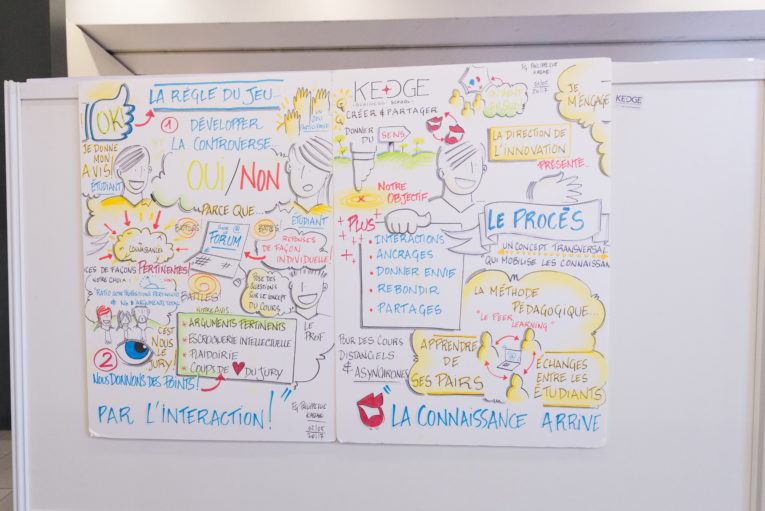 LA RÉGLE DU JEU
OK!
1
DÉVELOPPER
LA CONTROVERSE...
UN JEU
PARTICIPATIF
JE DONNE
MON
AVIS!
ÉTUDIANT
OUI/NON
PARCE QUE...
ÉTUDIANT
CONNAISSANCES
BATTLES
FORUM
BATTLES
RÉPONSES
DE FAÇON
INDIVIDUELLE
DE FAÇONS PERTINENTES
BATTLES
POSE DES
QUESTIONS
SUR LE CONCEPT
DU COURS
LE
PROF
C'EST
NOUS
LE
JURY!
ARGUMENTS PERTINENTS
ESCROQUERIE INTELLECTUELLE
PLAIDOIRIE
COUPS DE ♥ DU JURY
2
NOUS DONNONS DES POINTS!
PAR L'INTERACTION!"
02/05
2017
KEDGE
BUSINESS SCHOOL
CRÉER & PARTAGER
DONNER DU
SENS
JE
M'ENGAGE
KEDGE
LA DIRECTION DE
L'INNOVATION
PRÉSENTE...
NOTRE
OBJECTIF
PLUS
INTERACTIONS
ANCRAGES
DONNER ENVIE
REBONDIR
PARTAGES
LE PROCÉS
UN CONCEPT TRANSVERSAL
QUI MOBILISE LES CONNAISSAN
LA MÉTHODE
PÉDAGOGIQUE...
"LE PEER
LEARNING"
POUR DES COURS
DISTANCIELS
& ASYNCHRONES
APPRENDRE
DE
SES PAIRS
ÉCHANGES
ENTRE LES
ÉTUDIANTS
"LA CONNAISSANCE ARRIVE